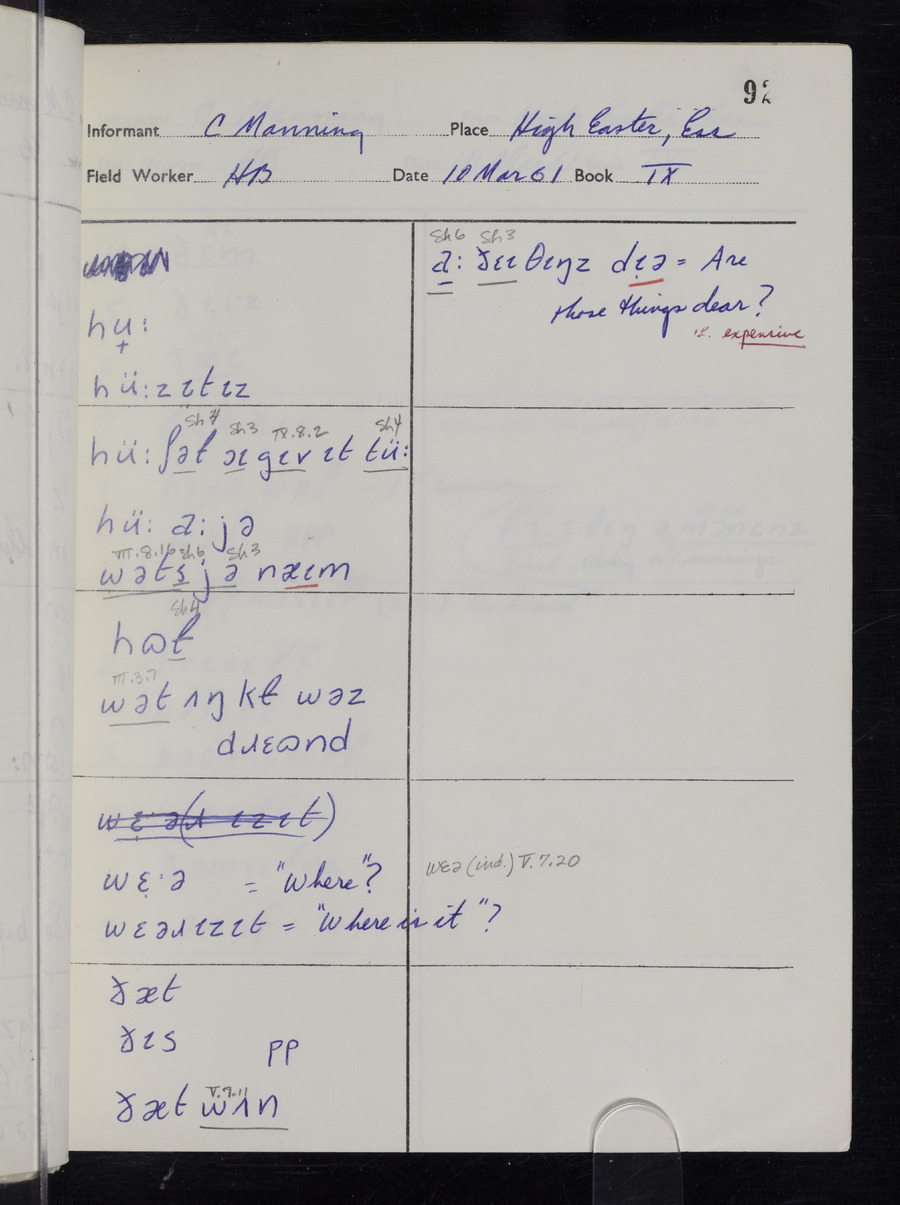 92
Informant C Manning Place High Easter, Ess
Field Worker HB Date 10 Mar 61 Book IX
hʉ:
+
hü:zɪtɪz
Sh4 Sh3 IX.8.2 Sh4
hü: ʃəł əɪ gɪv ɪt tü:
hü: a: jə
VII.8.16 Sh6 Sh3
wəts jə næɪm
Sh4
hɷł
III.3.7
wət ʌŋkł wəz
dɹɛɷnd
wɛ·ə(ɹ ɪzɪt)
wɛ̣·ə = "Where"?
wɛəɹɪzɪt = "Where is it"?
ðæt
ðɪs pp
V.7.11
ðæt wʌn
Sh6 Sh3
a: ðɛɪ θɪŋz dɪə = Are
those things dear?
i.e. expensive
wɛə (ind.) V.7.20